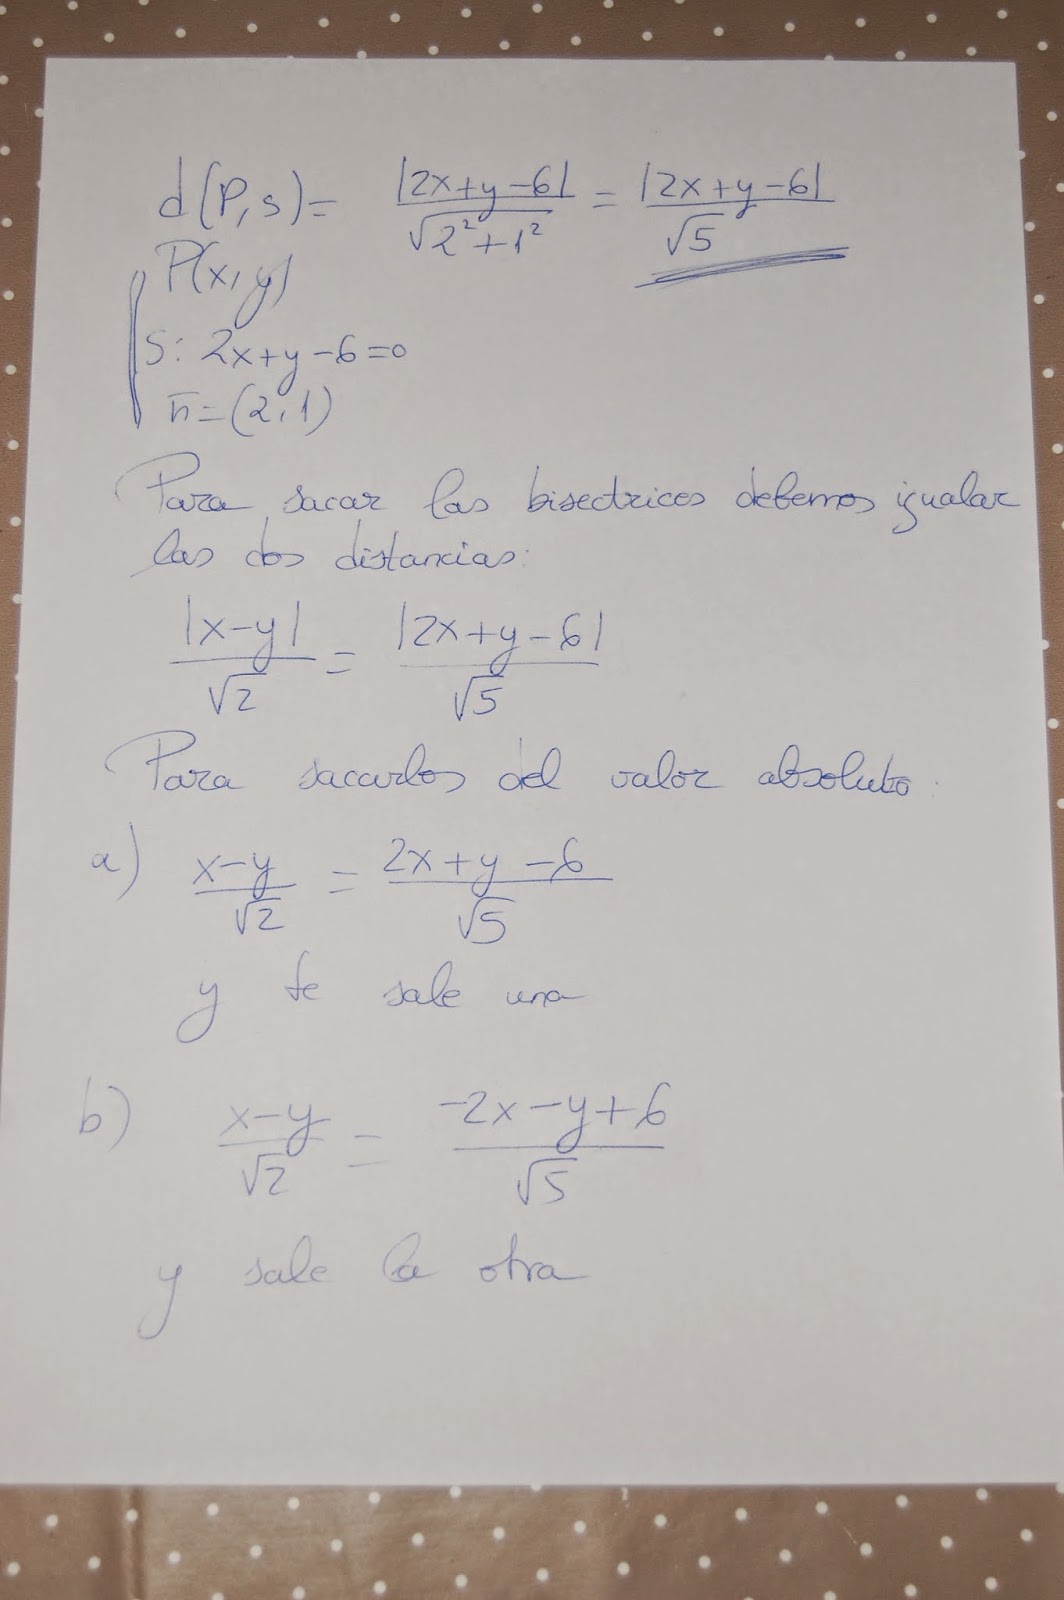 d(P,s)= |2x+y-6| / √2²+1² = |2x+y-6| / √5
P(x,y)
s: 2x+y-6=0
n̄=(2,1)
Para sacar las bisectrices debemos igualar
las dos distancias:
|x-y| / √2 = |2x+y-6| / √5
Para sacarlos del valor absoluto:
a) x-y / √2 = 2x+y-6 / √5
y te sale una
b) x-y / √2 = -2x-y+6 / √5
y sale la otra